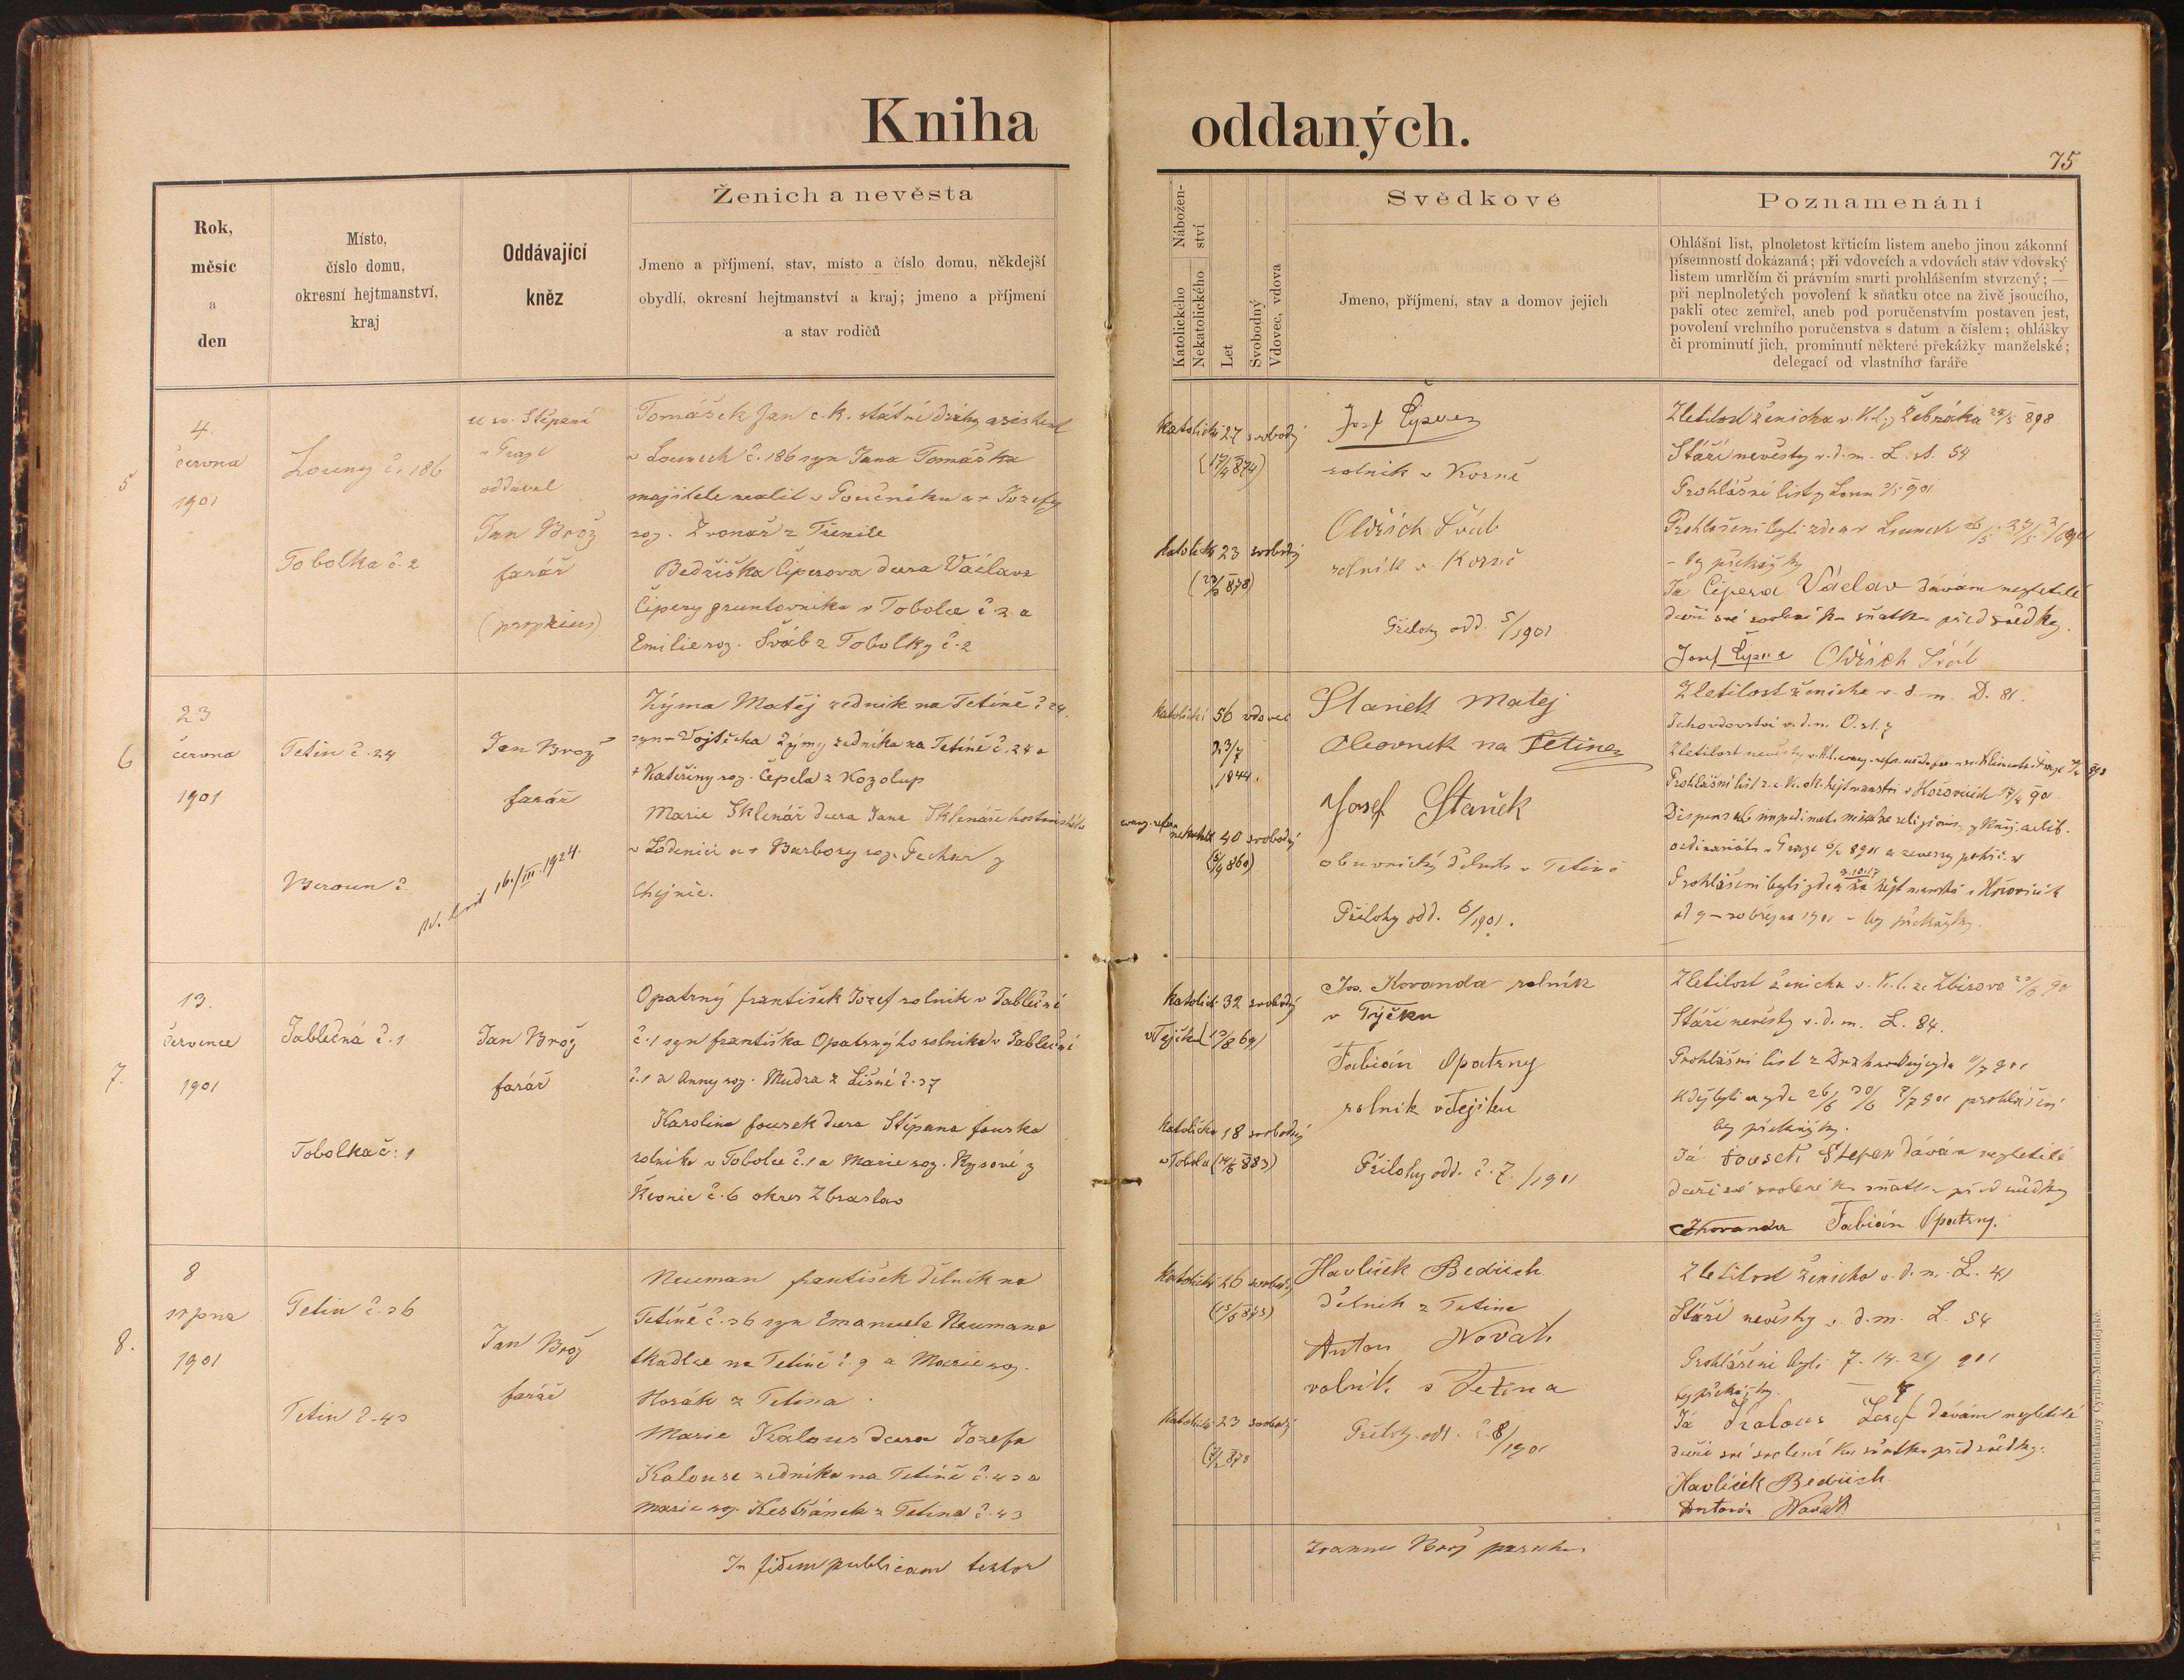 Kniha oddaných.
75
Rok,
měsíc
a
den
Místo,
číslo domu,
okresní hejtmanství,
kraj
Oddávající
kněz
Ženich a nevěsta
Jmeno a příjmení, stav, místo a číslo domu, někdejší
obydlí, okresní hejtmanství a kraj; jmeno a příjmení
a stav rodičů
Nábožen-
ství
Katolického
Nekatolického
Let
Svobodný
Vdovec, vdova
Svědkové
Jmeno, příjmení, stav a domov jejich
Poznamenání
Ohlášní list, plnoletost křticím listem anebo jinou zákonní
písemností dokázaná; při vdovcích a vdovách stav vdovský
listem umrlčím či právním smrti prohlášením stvrzený; —
při neplnoletých povolení k sňatku otce na živě jsoucího,
pakli otec zemřel, aneb pod poručenstvím postaven jest,
povolení vrchního poručenstva s datum a číslem; ohlášky
či prominutí jich, prominutí některé překážky manželské;
delegací od vlastního faráře
5
4.
června
1901
Louny č. 186
Tobolka č. 2
u sv. Štěpána
v Praze
oddával
Jan Brož
farář
(proprius)
Tomášek Jan c. k. státní dráhy asistent
v Lounech č. 186 syn Jana Tomáška
majitele realit v a + Josefy
roz. Zvonař z
Bedřiška Čiperova dcera Václava
Čipery gruntovníka v Tobolce č. 2 a
Emilie roz. Šváb z Tobolky č. 2
katolický 27 svobodý
(17/4 874)
katolick 23 svobodý
Josef Čipera
rolník v Korně
Oldřich Šváb
rolník v Korně
Přílohy odd. 5/1901
Zletilost ženicha v. K. l. z Žebráka 28/5 898
Stáří nevěsty v. d. m. L. st. 54
Prohlášní list z Loun
Prohlášeni byli zde a v Lounech
- bez překážky
Já Čipera Václav dávám nezletilé
dceři své svolení ku sňatku před svědky.
Josef Čipera Oldřich Šváb
6
23
června
1901
Tetín č. 24
Beroun č.
Jan Brož
farář
16./III. 1924.
Zýma Matěj zedník na Tetíně č 24.
syn + Vojtěcha Zýmy zedníka na Tetíně č. 24 a
+ Kateřiny roz. Čepela z Kozolup
Marie Sklenář dcera Jana Sklenáře hostinského
v Loděnici a + Barbory roz. Fechar z
Chejnic.
katolický 56 vdovec
23/7
1844.
evang. refor.
nekatol. 40 svobodný
Staněk Matej
Oleovnik na Tetině
Josef Staněk
obuvnický dělník v Tetíně
Přílohy odd. 6/1901.
Zletilost ženicha v. d. m. D. 81.
Zletilost nevěsty
Prohlášní list z c. k. ok. hejtmanství v Hořovicích
Prohlášeni byli zde a na hejtmanství v Hořovicích
3. 10. 17
bez překážky.
7.
13.
července
1901
Jablečná č. 1
Tobolka č. 1
Jan Brož
farář
Opatrný František Josef rolník v Jablečné
č. 1 syn Františka Opatrného rolníka v Jablečné
č. 1 a Anny roz. Mudra z Lišné č. 37
Karolina Fousek dcera Štěpána Fouska
rolníka v Tobolce č. 1 a Marie roz. Rysové z
č. 6 okres Zbraslav
katolick 32 svobodný
v Tejčku
katolička 18 svobodný
v Tobolce
Jos. Koranda rolník
v Týčku
Fabián Opatrny
rolník v Tejčku
Přílohy odd. č. 7./1901
Zletilost ženicha v. K. l. ze Zbirova
Stáří nevěsty v. d. m. L. 84.
Prohlášní list z
Když byli a zde 26/6 30/6 7/7 901 prohlášeni
bez překážky.
Já Fousek Štepan dávám nezletilé
dceři své svolení ku sňatku před svědky
JKoranda Fabián Opatrny.
8.
8
srpna
1901
Tetín č. 36
Tetín č. 43
Jan Brož
farář
Neuman František dělník na
Tetíně č. 36 syn Emanuela Neumana
tkadlce na Tetíně č. 9 a Marie roz.
Horák z Tetína.
Marie Kalous dcera Josefa
Kalouse zedníka na Tetíně č. 43 a
Marie roz. Kestřánek z Tetína č. 43
katolický 26 svobodý
katolick 23 svobodý
Havlíček Bedrich
dělník z Tetína
Anton Novák
rolník z Tetína
Přílohy odd. č. 8/1901
Zletilost ženicha v. d. m. L. 41
Stáří nevěsty v. d. m. L. 54
Prohlášeni byli 7. 14. 21/ 901
bez překážky.
Já Kalous Josef dávám nezletilé
dceři své svolení ku sňatku před svědky.
Havlíček Bedrich
Antonín Novák
In fidem publicam testor
Joannes Brož parochus
Tisk a náklad knihtiskárny Cyrillo-Methodějské.